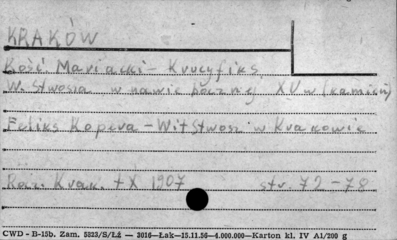 KRAKÓW
Kość. Mariacki - Krucyfiks
W. Stwosza w nawie bocznej XV w (kamień)
Feliks Kopera - Wit Stwosz w Krakowie
Rocz. Krak. t X 1907 str. 72 - 78
CWD - B-15b. Zam. 5823/S/Łż — 2016—Łak—15.11.56—4.000.000—Karton kl. IV A1/200 g